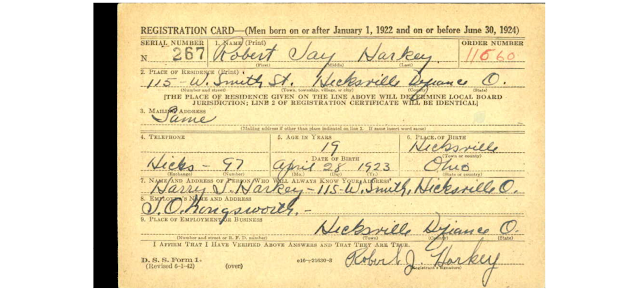 REGISTRATION CARD—(Men born on or after January 1, 1922 and on or before June 30, 1924)
SERIAL NUMBER 1. NAME (Print) ORDER NUMBER
N 267 Robert Jay Harkey 11560
(First) (Middle) (Last)
2. PLACE OF RESIDENCE (Print)
115 - W. Smith St. Hicksville Defiance O.
(Number and street) (Town, township, village, or city) (County) (State)
[THE PLACE OF RESIDENCE GIVEN ON THE LINE ABOVE WILL DETERMINE LOCAL BOARD
JURISDICTION; LINE 2 OF REGISTRATION CERTIFICATE WILL BE IDENTICAL]
3. MAILING ADDRESS
Same
(Mailing address if other than place indicated on line 2. If same insert word same)
4. TELEPHONE 5. AGE IN YEARS 6. PLACE OF BIRTH
19 Hicksville
DATE OF BIRTH (Town or county)
Hicks - 97 April 28 1923 Ohio
(Exchange) (Number) (Mo.) (Day) (Yr.) (State or country)
7. NAME AND ADDRESS OF PERSON WHO WILL ALWAYS KNOW YOUR ADDRESS
Harry J. Harkey - 115-W. Smith, Hicksville O.
8. EMPLOYER'S NAME AND ADDRESS
S. O. Kongsworth. -
9. PLACE OF EMPLOYMENT OR BUSINESS
Hicksville Defiance O.
(Number and street or R. F. D. number) (Town) (County) (State)
I AFFIRM THAT I HAVE VERIFIED ABOVE ANSWERS AND THAT THEY ARE TRUE.
D. S. S. Form 1
(Revised 6-1-42) (over) Robert J. Harkey
(Registrant's signature)